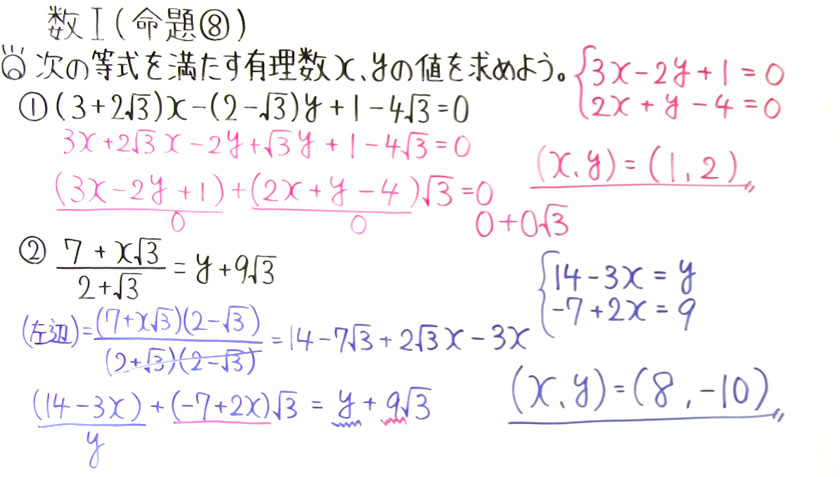 数Ⅰ(命題⑧)
次の等式を満たす有理数x、yの値を求めよう。
①(3+2√3)x-(2-√3)y+1-4√3=0
3x+2√3x-2y+√3y+1-4√3=0
(3x-2y+1)+(2x+y-4)√3=0
0 0 0+0√3
{3x-2y+1=0
2x+y-4=0
(x、y)=(1,2)
② (7+x√3)/(2+√3)=y+9√3
(左辺)=(7+x√3)(2-√3)/(2+√3)(2-√3)=14-7√3+2√3x-3x
(14-3x)+(-7+2x)√3=y+9√3
y
{14-3x=y
-7+2x=9
(x、y)=(8,-10)